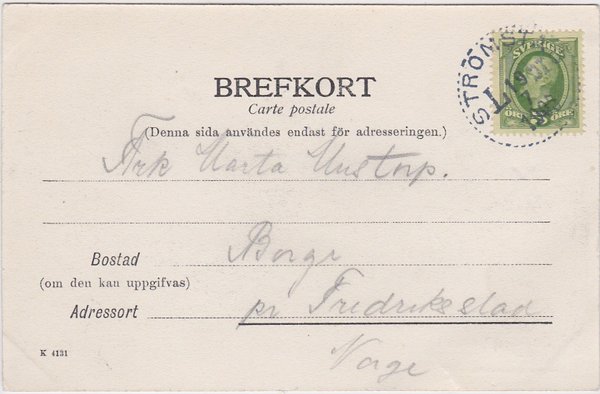 BREFKORT
Carte postale
(Denna sida användes endast för adresseringen.)
SVERIGE
ÖRE
STRÖMST
Frk Marta Mustorp.
Bostad
Borge
(om den kan uppgifvas)
Adressort
pr Fredriksstad
Norge
K 4131